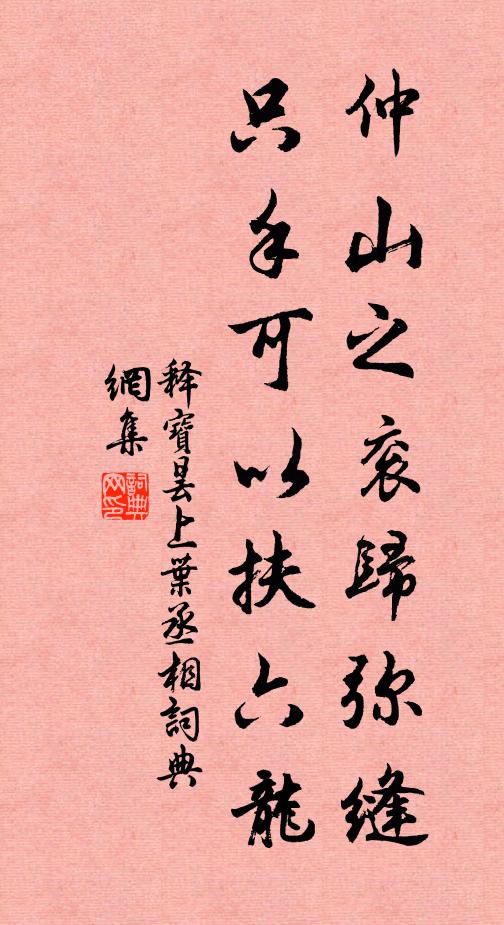 仲山之衮歸弥縫
只手可以扶六龍
释寶曇上葉丞相詞典
網集
詞典网印